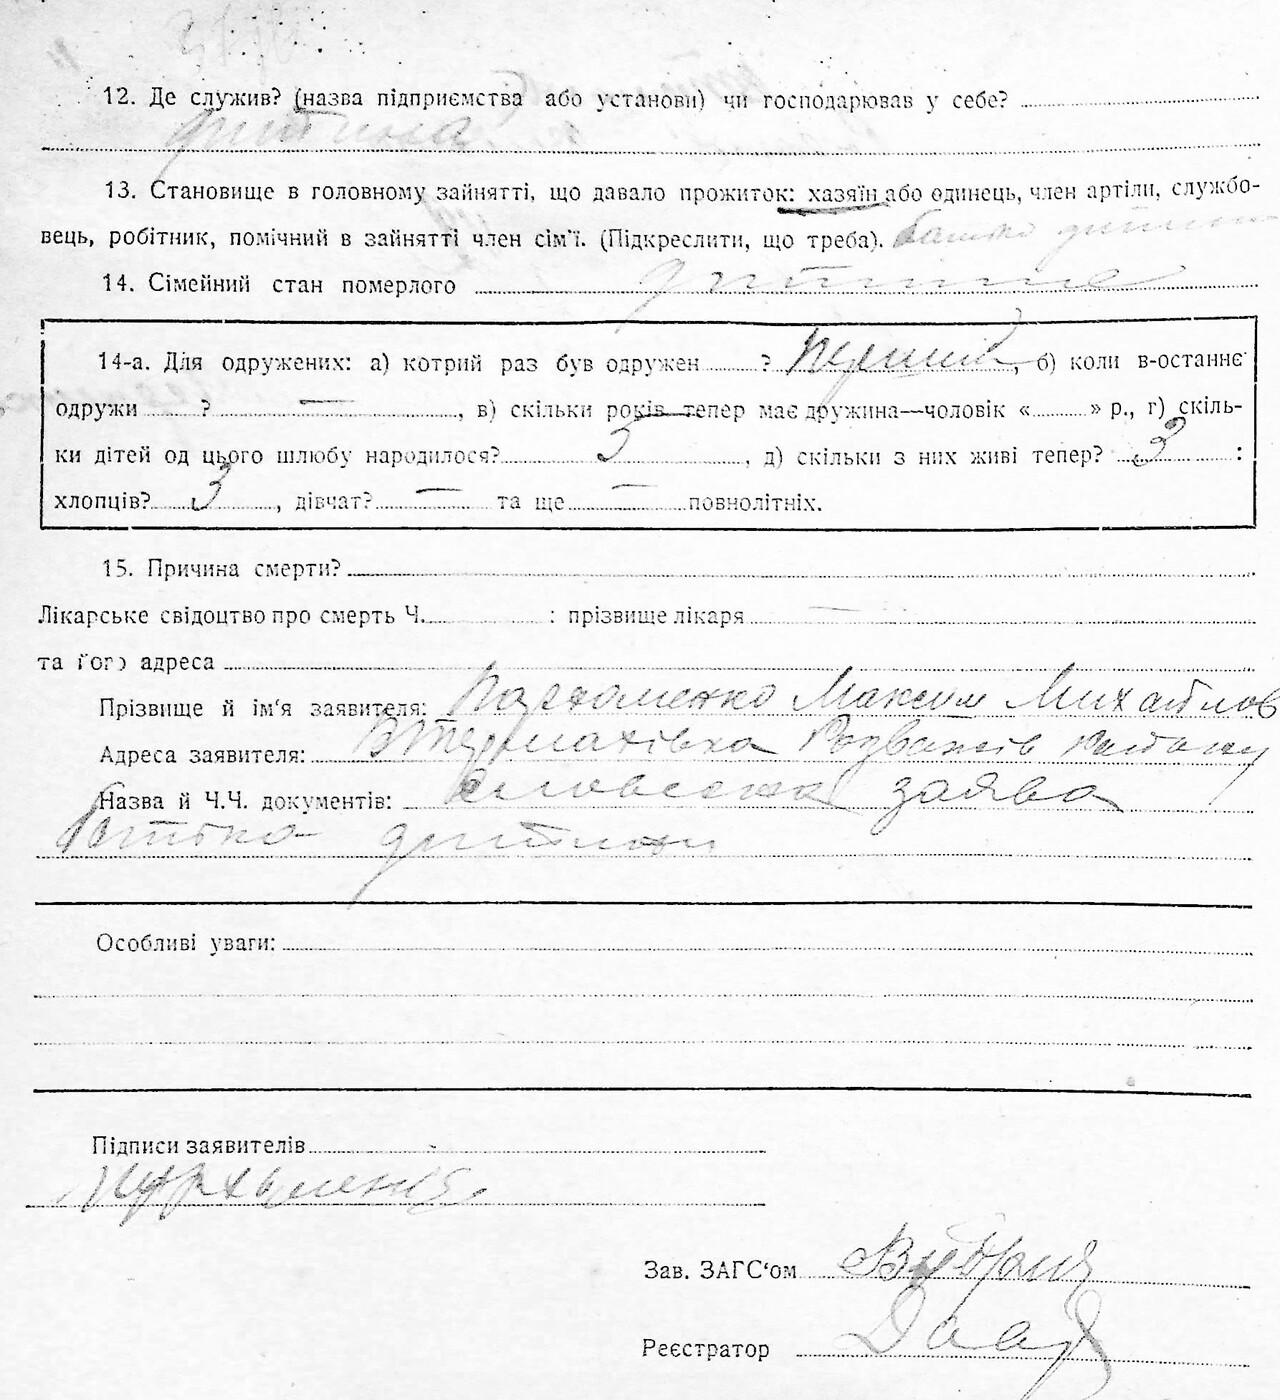 12. Де служив? (назва підприємства або установи) чи господарював у себе?
дитина
13. Становище в головному зайнятті, що давало прожиток: хазяїн або одинець, член артіли, службо-
вець, робітник, помічний в зайнятті член сім'ї. (Підкреслити, що треба). батько дитини
14. Сімейний стан померлого дитина
14-а. Для одружених: а) котрий раз був одружен ? перший, б) коли в-останнє
одружи ? — , в) скільки років тепер має дружина—чоловік « » р., г) скіль-
ки дітей од цього шлюбу народилося? 3 , д) скільки з них живі тепер? 3 :
хлопців? 3 , дівчат? — та ще — повнолітніх.
15. Причина смерти?
Лікарське свідоцтво про смерть Ч. : прізвище лікаря —
та його адреса
Прізвище й ім'я заявителя: Пархоменко Максим Михайлов
Адреса заявителя: Термахівка Розважів
Назва й Ч.Ч. документів: словесна заява
батька дитини
Особливі уваги:
Підписи заявителів
Пархоменко
Зав. ЗАГС'ом
Реєстратор